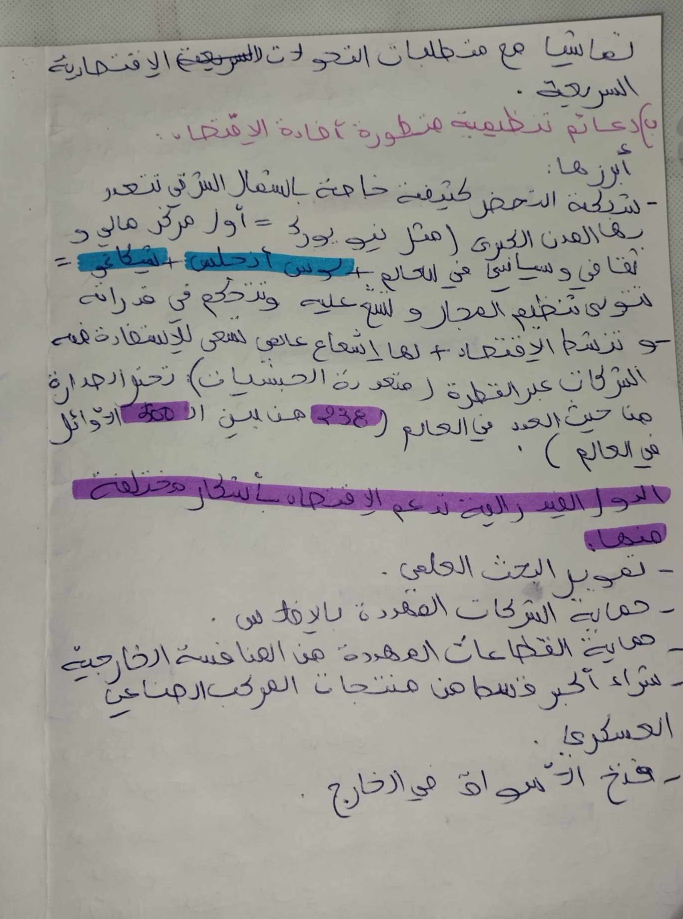 تماشيا مع متطلبات التحولات السريعة الاقتصادية
السريعة .
ب) دعائم تنظيمية متطورة أفادة الاقتصاد .
أبرزها :
- شبكة التحضر كثيفة خاصة بالشمال الشرقي تتعدد
بها المدن الكبرى (مثل نيويورك = أول مركز مالي و
ثقافي و سياسي في العالم + لوس أنجلس + شيكاغو =
تتوسى تنظيم المجار و تشع عليه وتتحكم في قدراته
و تنشط الاقتصاد + لها إشعاع عالمي تسعى للإستفادة منه
الشركات عبر القطرية (متعددة الجنسيات) : تحتل الصدارة
من حيث العدد في العالم (238 من بين الـ 500 الأوائل
في العالم ) .
الدول الفيدرالية تدعم الاقتصاد بأشكار مختلفة
منها .
- تمويل البحث العلمي .
- حماية الشركات المهددة بالإفلاس .
- حماية القطاعات المهددة من المنافسة الخارجية
- شراء أكبر قسط من منتجات المركب الصناعي
العسكري .
- فتح الأسواق في الخارج .